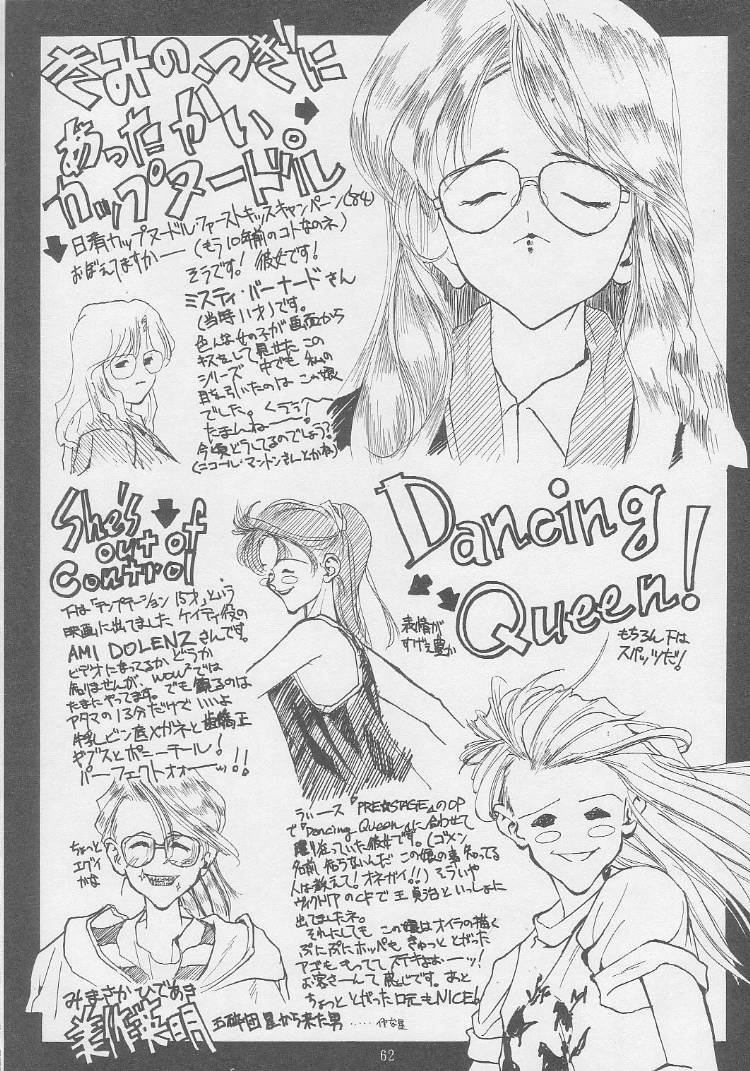 きみの、つぎに
あったかい
カップヌードル。
日清カップヌードルファーストキッスキャンペーン('84)
おぼえてますかー
(もう10年前のコトなのネ)
そうです!彼女です!
ミスティ・バーナードさん
(当時11才)です。
色んな女の子が画面から
キスをして見せたこの
シリーズ中でも私の
目を引いたのはこの娘
でした。くううぅ〜
たまんねー
今頃どうしてるのでしょう?
(ニコール・マンドンさんとかね)
She's
out of
control
下は「テンプテーション15才」という
映画に出てましたケイティ役の
AMI DOLENZさんです。
ビデオになってるかどうか
知りませんが、WOWOWでは
たまにやってます。でも観るのは
アタマの13分だけでいいよ
牛乳ビン底メガネと歯矯正
ギブスとポニーテール!
パーフェクトォォーッ!!
Dancing
Queen!
表情が
すげえ豊か
もちろん下は
スパッツだ!
ちょっと
エグイ
かな
うぃース「PRE☆STAGE」のOP
で「Dancing Queen」に合わせて
踊り狂っていた彼女です。(ゴメン
名前知らないんだ この娘の事知ってる
人は教えて!オネガイ!!)そういや
のCFで王貞治といっしょに
出てましたネ。
それにしてもこの娘はオイラの描く
ぷにぷにホッペもきゅっととがった
アゴももっててステキよぉーッ!
お客さーんて感じです。あと
ちょっととがった口元もNICE!
みまさかひであき
美作英明
五反田星から来た男
62